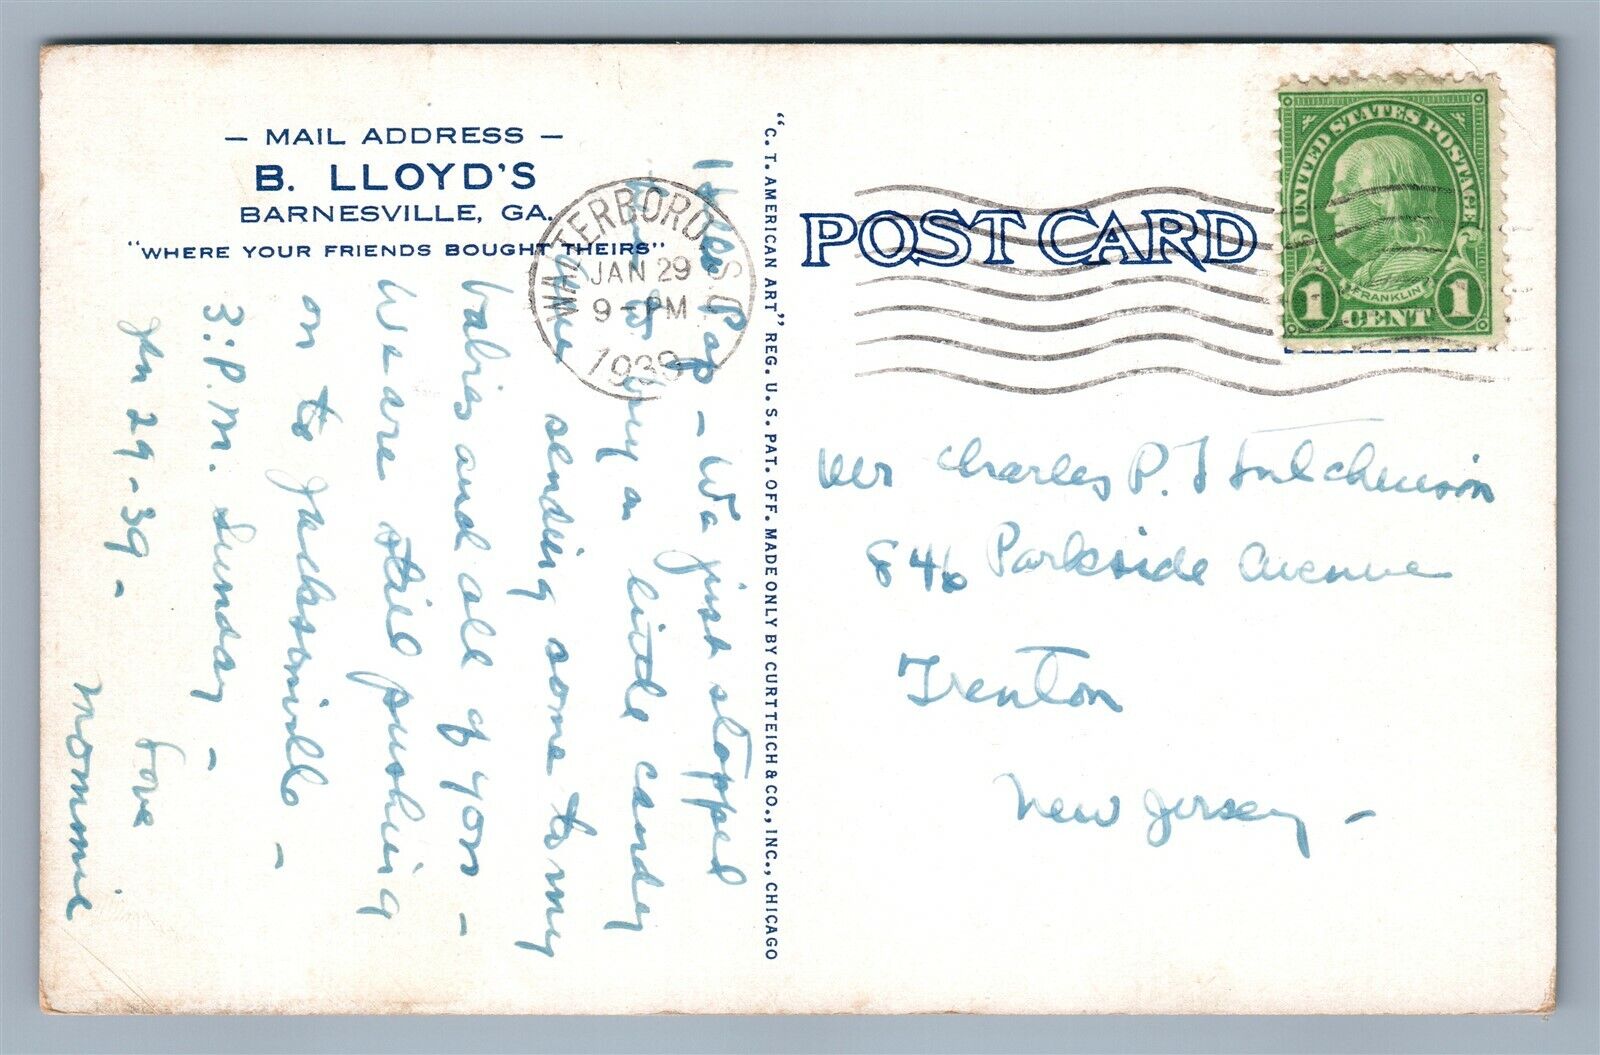 — MAIL ADDRESS —
B. LLOYD'S
BARNESVILLE, GA.
"WHERE YOUR FRIENDS BOUGHT THEIRS"
WALTERBORO, S.C.
JAN 29
9 - PM
1939
Dear Pap - We just stopped
here to buy a little candy
sending some to my
babies and all of you -
We are still pushing
on to Jacksonville -
3: P.M. Sunday -
Jan 29 - 39 -
Love
Mommie
"C. T. AMERICAN ART" REG. U. S. PAT. OFF. MADE ONLY BY CURT TEICH & CO., INC., CHICAGO
POST CARD
UNITED STATES POSTAGE
FRANKLIN
1 CENT 1
Mr Charles P. T Hutchinson
846 Parkside Avenue
Trenton
New Jersey -